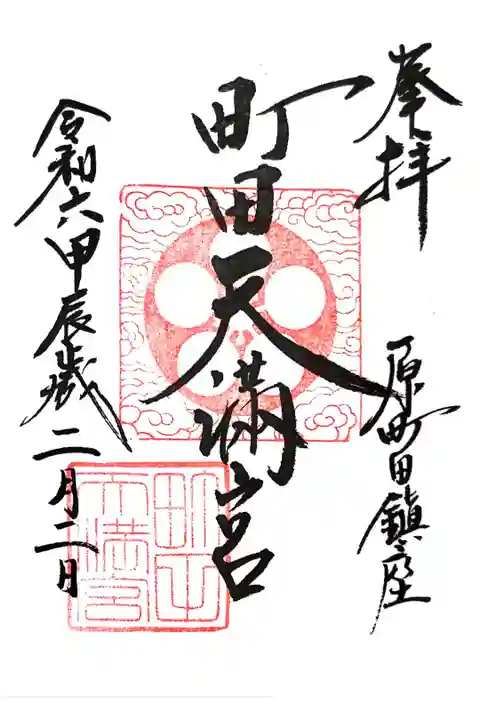 奉拝
原町田鎮座
町田天満宮
令和六甲辰歳二月二日
町田天満宮